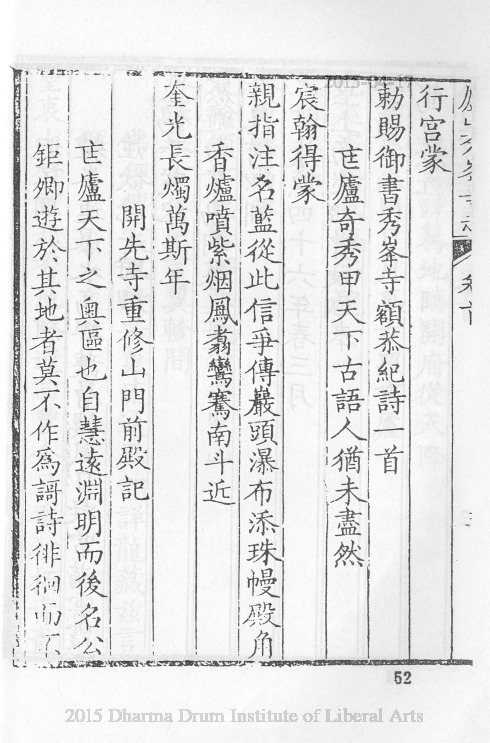 行宫蒙
勅賜御書秀峯寺額恭紀詩一首
匡廬奇秀甲天下古語人猶未盡然
宸翰得蒙
親指注名藍從此信爭傳巖頭瀑布添珠幔殿角
香爐噴紫烟鳳翥鸞騫南斗近
奎光長燭萬斯年
開先寺重修山門前殿記
匡廬天下之奥區也自慧遠淵明而後名公
鉅卿遊於其地者莫不作爲謌詩徘徊而不
52
2015 Dharma Drum Institute of Liberal Arts